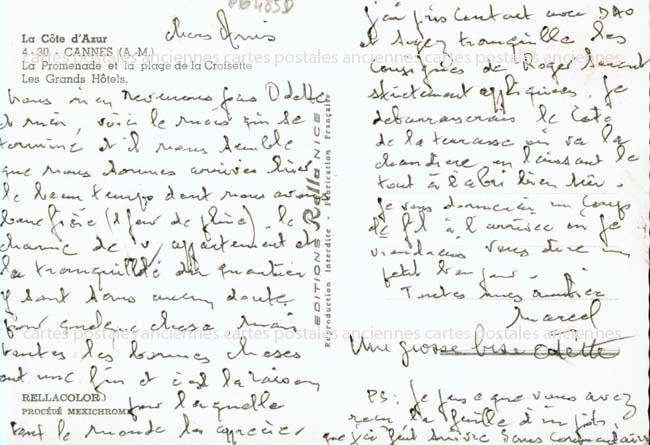 La Côte d'Azur
4-30 - CANNES (A.-M.)
La Promenade et la plage de la Croisette
Les Grands Hôtels.
chers Amis
nous n'en revenons pas Odette
et moi, voici le mois qui se
termine et il nous semble
que nous sommes arrivés hier
le beau temps dont nous avons
bénéficié (1 jour de pluie), le
charme de v/ appartement et
la tranquillité du quartier
y sont sans aucun doute
pour quelque chose mais
toutes les bonnes choses
ont une fin et c'est la raison
pour laquelle
tout le monde les apprécie
RELLACOLOR
PROCÉDÉ MEXICHROME
EDITIONS Rella NICE
Reproduction Interdite - Fabrication Française
j'ai pris contact avec
et soyez tranquille les
consignes de Roger seront
strictement appliquées. je
débarrasserais le côté
de la terrasse où va la
chaudière en laissant le
tout à l'abri bien sûr.
je vous donnerai un coup
de fil à l'arrivée ou je
viendrais vous dire un
petit bonjour.
Toutes mes amitiés
Marcel
Une grosse bise Odette
PS: je pense que vous avez
reçu la feuille d'impôts
que j'ai fait suivre sans commentaires
cartes postales anciennes cartes postales anciennes cartes postales anciennes
cartes postales anciennes cartes postales anciennes cartes postales anciennes